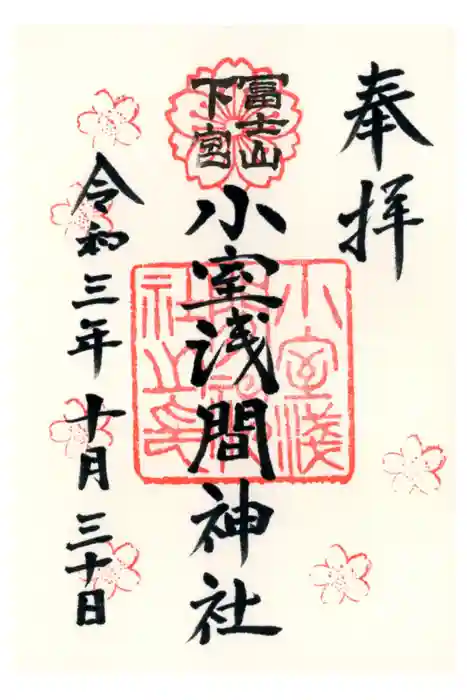 奉拝
冨士山
下宮
小室浅間神社
小室浅
間神
社之印
令和三年十月三十日